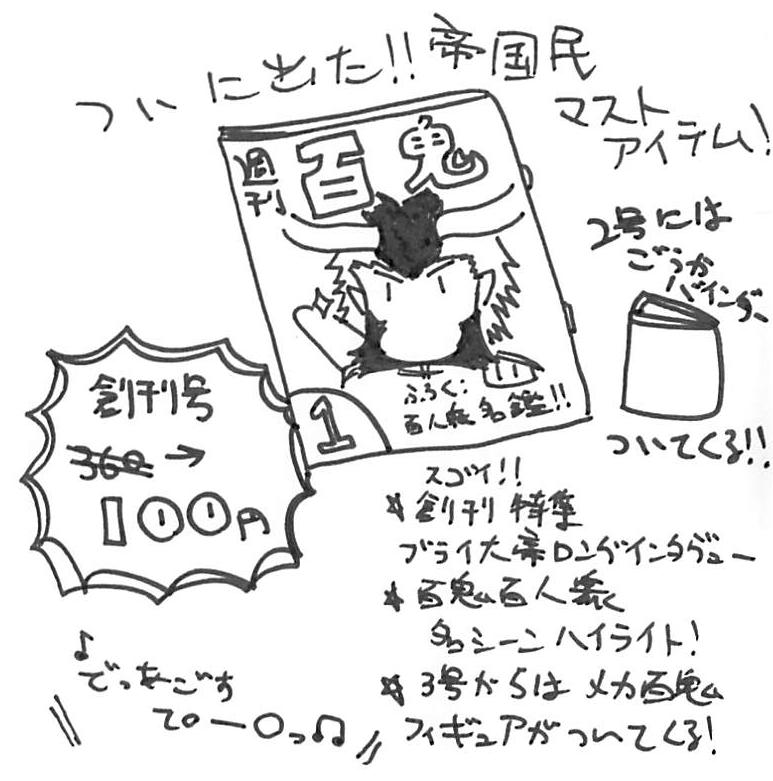 ついに出た!!帝国民
マスト
アイテム!
週刊
百鬼
2号には
ごうか
バインダー
ついてくる!!
創刊号
360→
100円
1
ふろく:
百人衆名鑑!!
スゴイ!!
*創刊特集
ブライ大帝ロングインタヴュー
*百鬼百人衆
名シーンハイライト!
*3号からはメカ百鬼
フィギュアがついてくる!
♪
でっあごす
てぃーぃっ♫